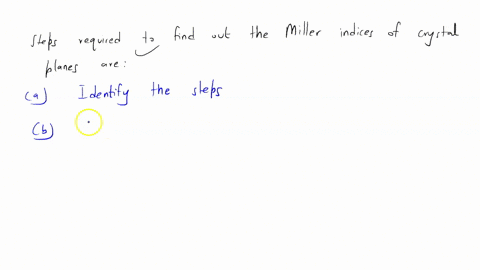 Steps required to find out the Miller indices of crystal
planes are:
(a) Identify the steps
(b)